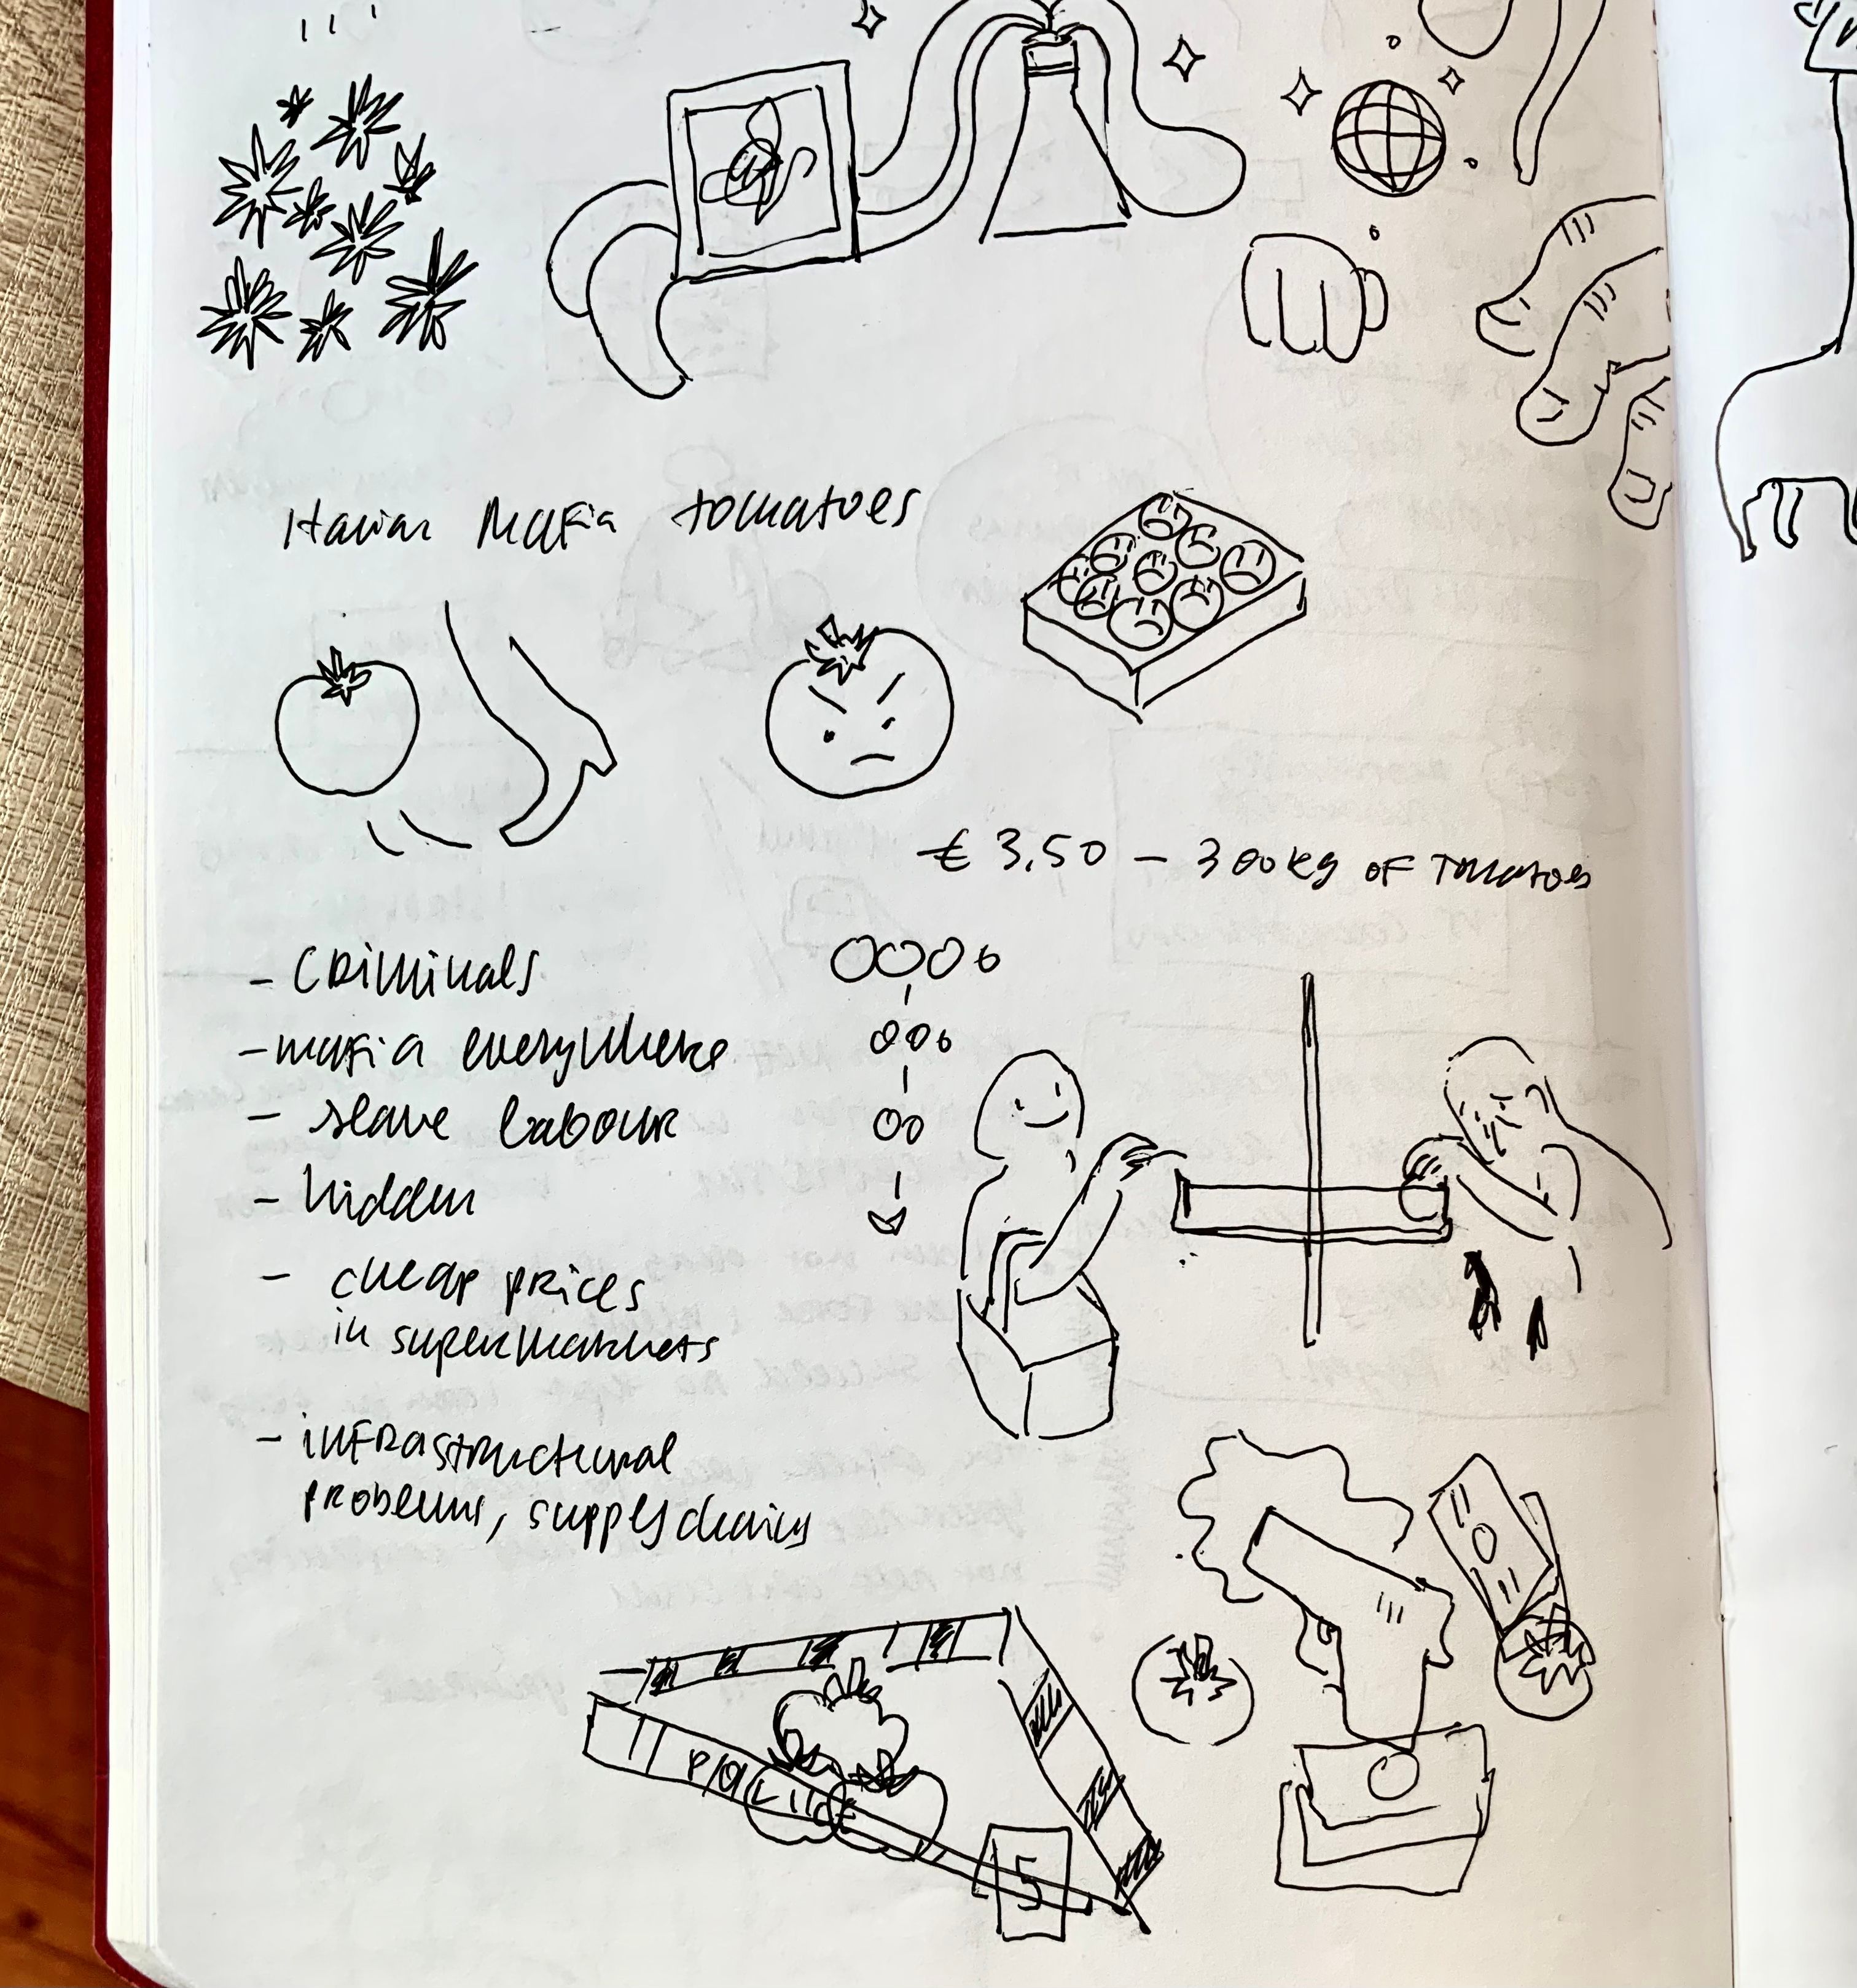 Italian Mafia tomatoes
€ 3,50 – 300kg of tomatoes
- criminals
- mafia everywhere
- slave labour
- hidden
- cheap prices
in supermarkets
- infrastructural
problems, supply chains
POLICE
5